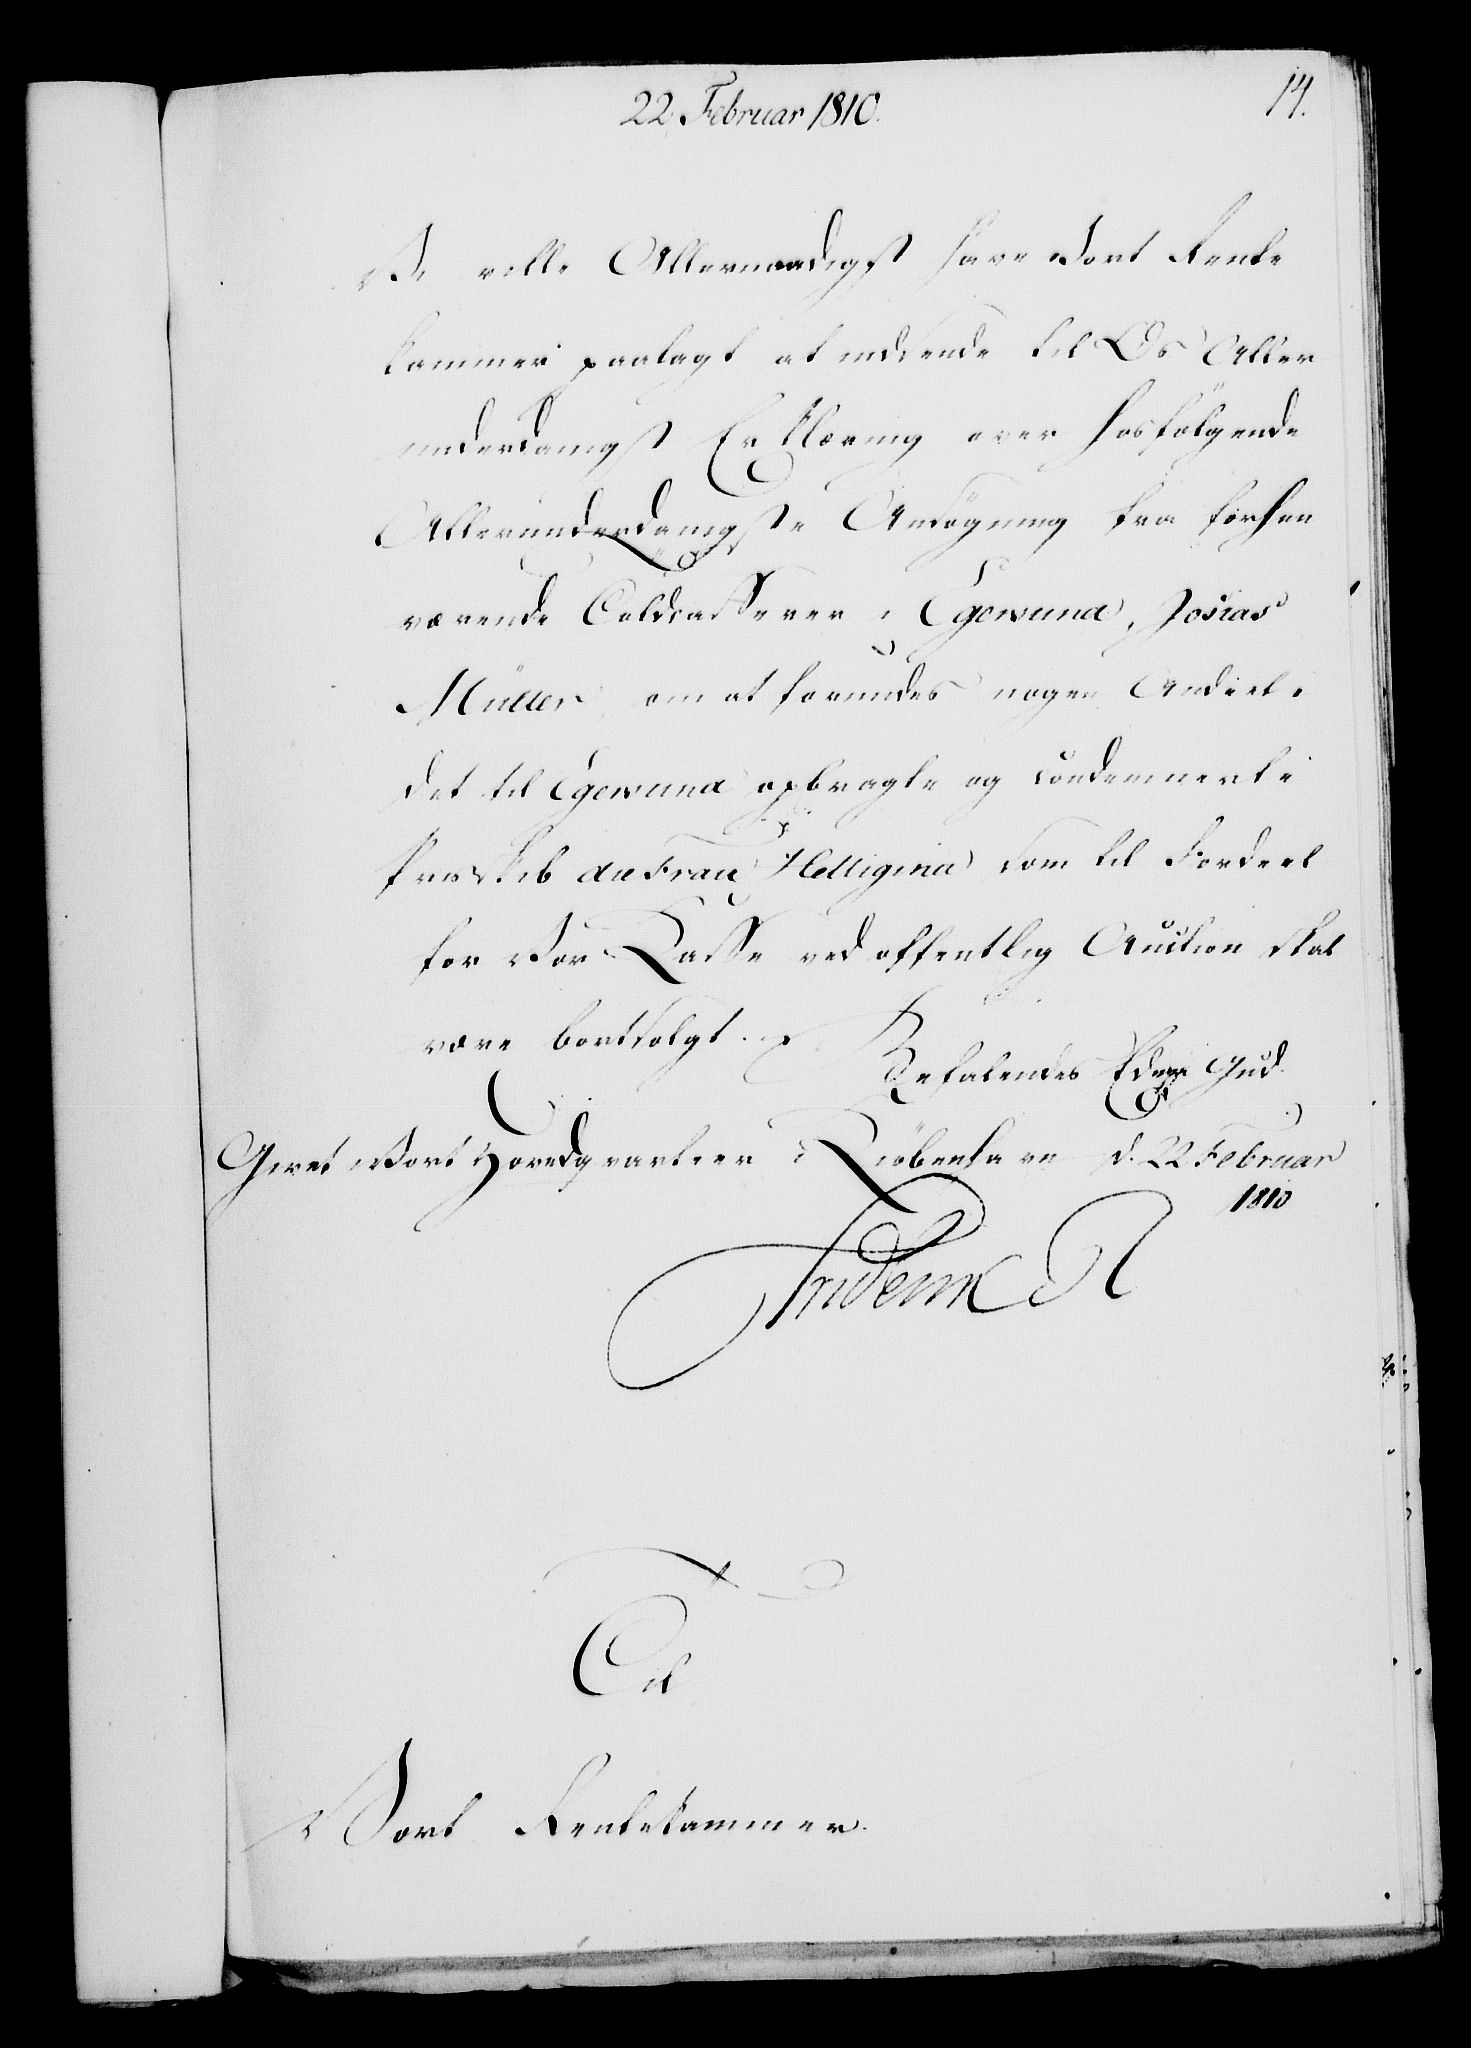 22 Februar 1810.
14.
Vi ville Allernaadigst have Vort Rente
kammer paalagt at indsende til Os Aller
underdanigst Erklæring over hosfölgende
Allerunderdanigste Ansögning fra forhen
værende Toldcasserer i Egersund, Josias
Müller, om at forundes nogen Andeel i
det til Egersund opbragte og condemnerte
Priisskib die Frau Heltigina som til Fordeel
for Vor Kasse ved offentlig Auction skal
være bortsolgt.
Befalendes Eder Gud.
Givet Vort Hovedqvarteer i Kiöbenhavn d. 22 Februar
1810
Friderik R
Til
Vort Rentekammer.